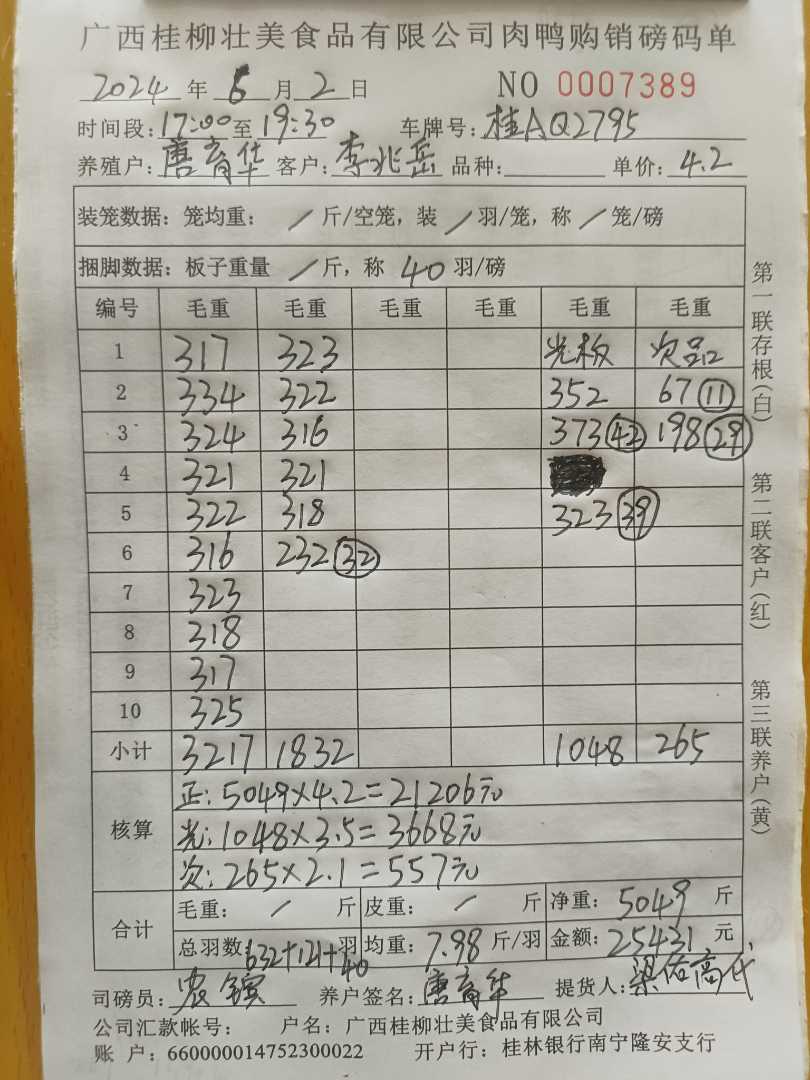 广西桂柳壮美食品有限公司肉鸭购销磅码单
2024 年 5 月 2 日 NO 0007389
时间段:17:00至19:30 车牌号:桂AQ2795
养殖户:唐育华 客户:李兆岳 品种: 单价:4.2
装笼数据:笼均重: / 斤/空笼,装 / 羽/笼,称 / 笼/磅
捆脚数据:板子重量 / 斤,称 40 羽/磅
编号 毛重 毛重 毛重 毛重 毛重 毛重
1 317 323 光板 次品
2 334 322 352 67 11
3 324 316 373 42 198 29
4 321 321
5 322 318 323 39
6 316 232 32
7 323
8 318
9 317
10 325
小计 3217 1832 1048 265
核算
正:5049×4.2=21206元
光:1048×3.5=3668元
次:265×2.1=557元
合计
毛重: / 斤 皮重: / 斤 净重:5049 斤
总羽数:632+121+40 羽 均重:7.98 斤/羽 金额:25431 元
司磅员:农 养户签名:唐育华 提货人:梁
公司汇款帐号: 户名:广西桂柳壮美食品有限公司
账 户:660000014752300022 开户行:桂林银行南宁隆安支行
第一联存根(白)
第二联客户(红)
第三联养户(黄)